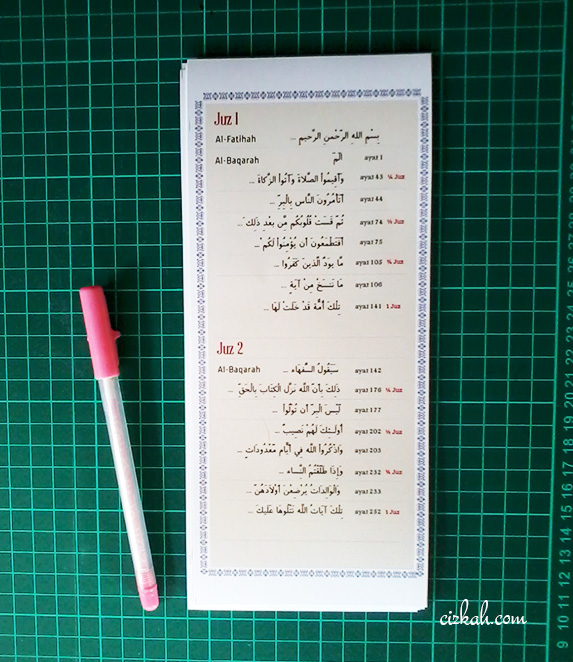 Juz 1
Al-Fatihah بِسْمِ اللهِ الرَّحْمنِ الرَّحِيمِ ...
Al-Baqarah الَمَ ayat 1
وَأَقِيمُواْ الصَّلاَةَ وَآتُواْ الزَّكَاةَ ... ayat 43 ¼ Juz
أَتَأْمُرُونَ النَّاسَ بِالْبِرِّ ... ayat 44
ثُمَّ قَسَتْ قُلُوبُكُم مِّن بَعْدِ ذَلِكَ ... ayat 74 ½ Juz
أَفَتَطْمَعُونَ أَن يُؤْمِنُواْ لَكُمْ ... ayat 75
مَّا يَوَدُّ الَّذِينَ كَفَرُوا ... ayat 105 ¾ Juz
مَا نَنسَخْ مِنْ آيَةٍ ... ayat 106
تِلْكَ أُمَّةٌ قَدْ خَلَتْ لَهَا ... ayat 141 1 Juz
Juz 2
Al-Baqarah سَيَقُولُ السُّفَهَاء ... ayat 142
ذَلِكَ بِأَنَّ اللّهَ نَزَّلَ الْكِتَابَ بِالْحَقِّ ... ayat 176 ¼ Juz
لَّيْسَ الْبِرَّ أَن تُوَلُّواْ ... ayat 177
أُولَـئِكَ لَهُمْ نَصِيبٌ ... ayat 202 ½ Juz
وَاذْكُرُواْ اللّهَ فِي أَيَّامٍ مَّعْدُودَاتٍ ... ayat 203
وَإِذَا طَلَّقْتُمُ النِّسَاء ... ayat 232 ¾ Juz
وَالْوَالِدَاتُ يُرْضِعْنَ أَوْلاَدَهُنَّ ... ayat 233
تِلْكَ آيَاتُ اللّهِ نَتْلُوهَا عَلَيْكَ ... ayat 252 1 Juz
cizkah.com
9 10 11 12 13 14 15 16 17 18 19 20